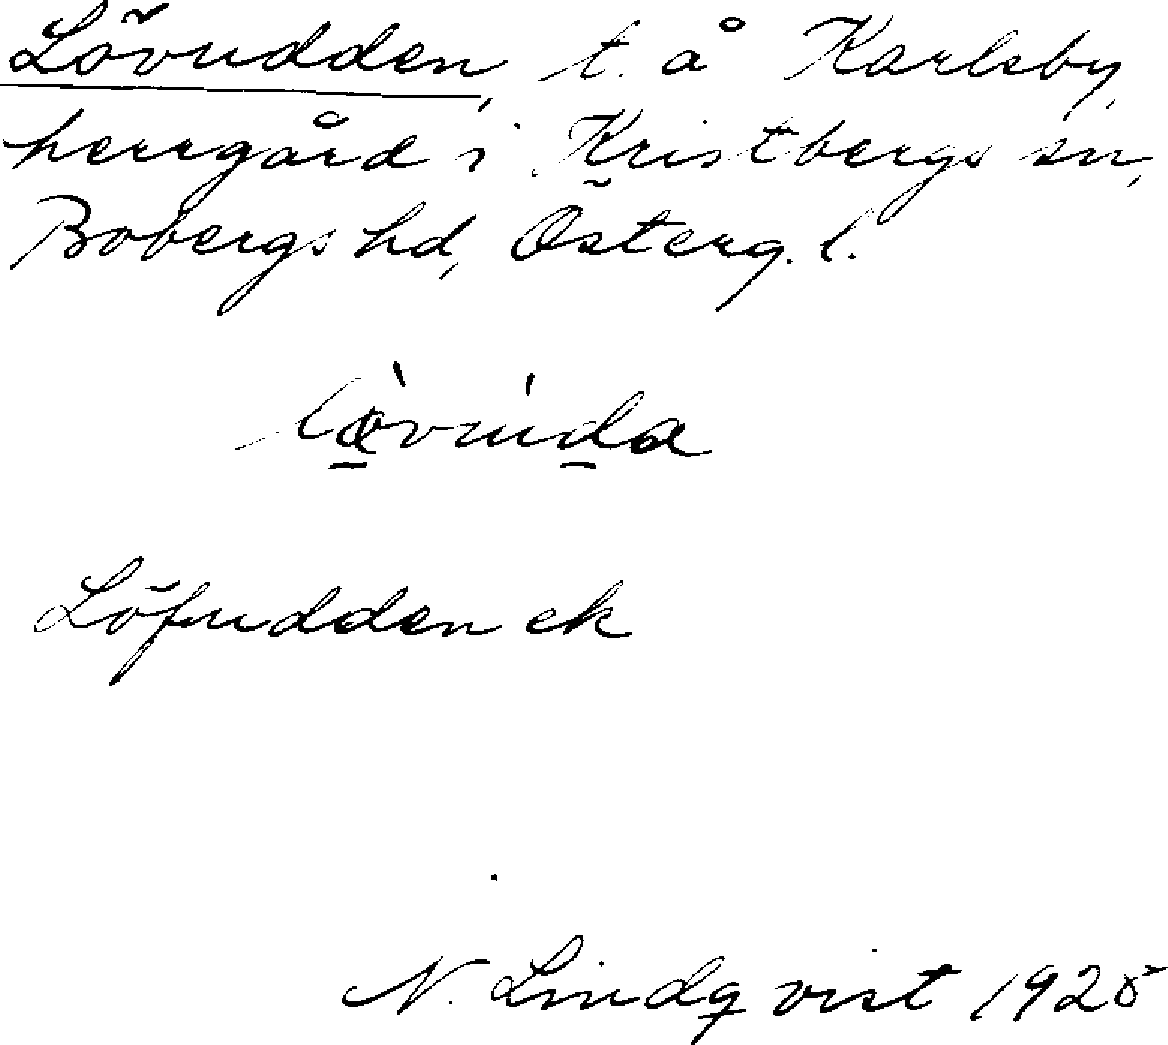 Lövudden, t. å Karlsby,
herrgård i Kristbergs sn,
Bobergs hd, Österg. l.
Löfudden ek
N. Lindqvist 1925